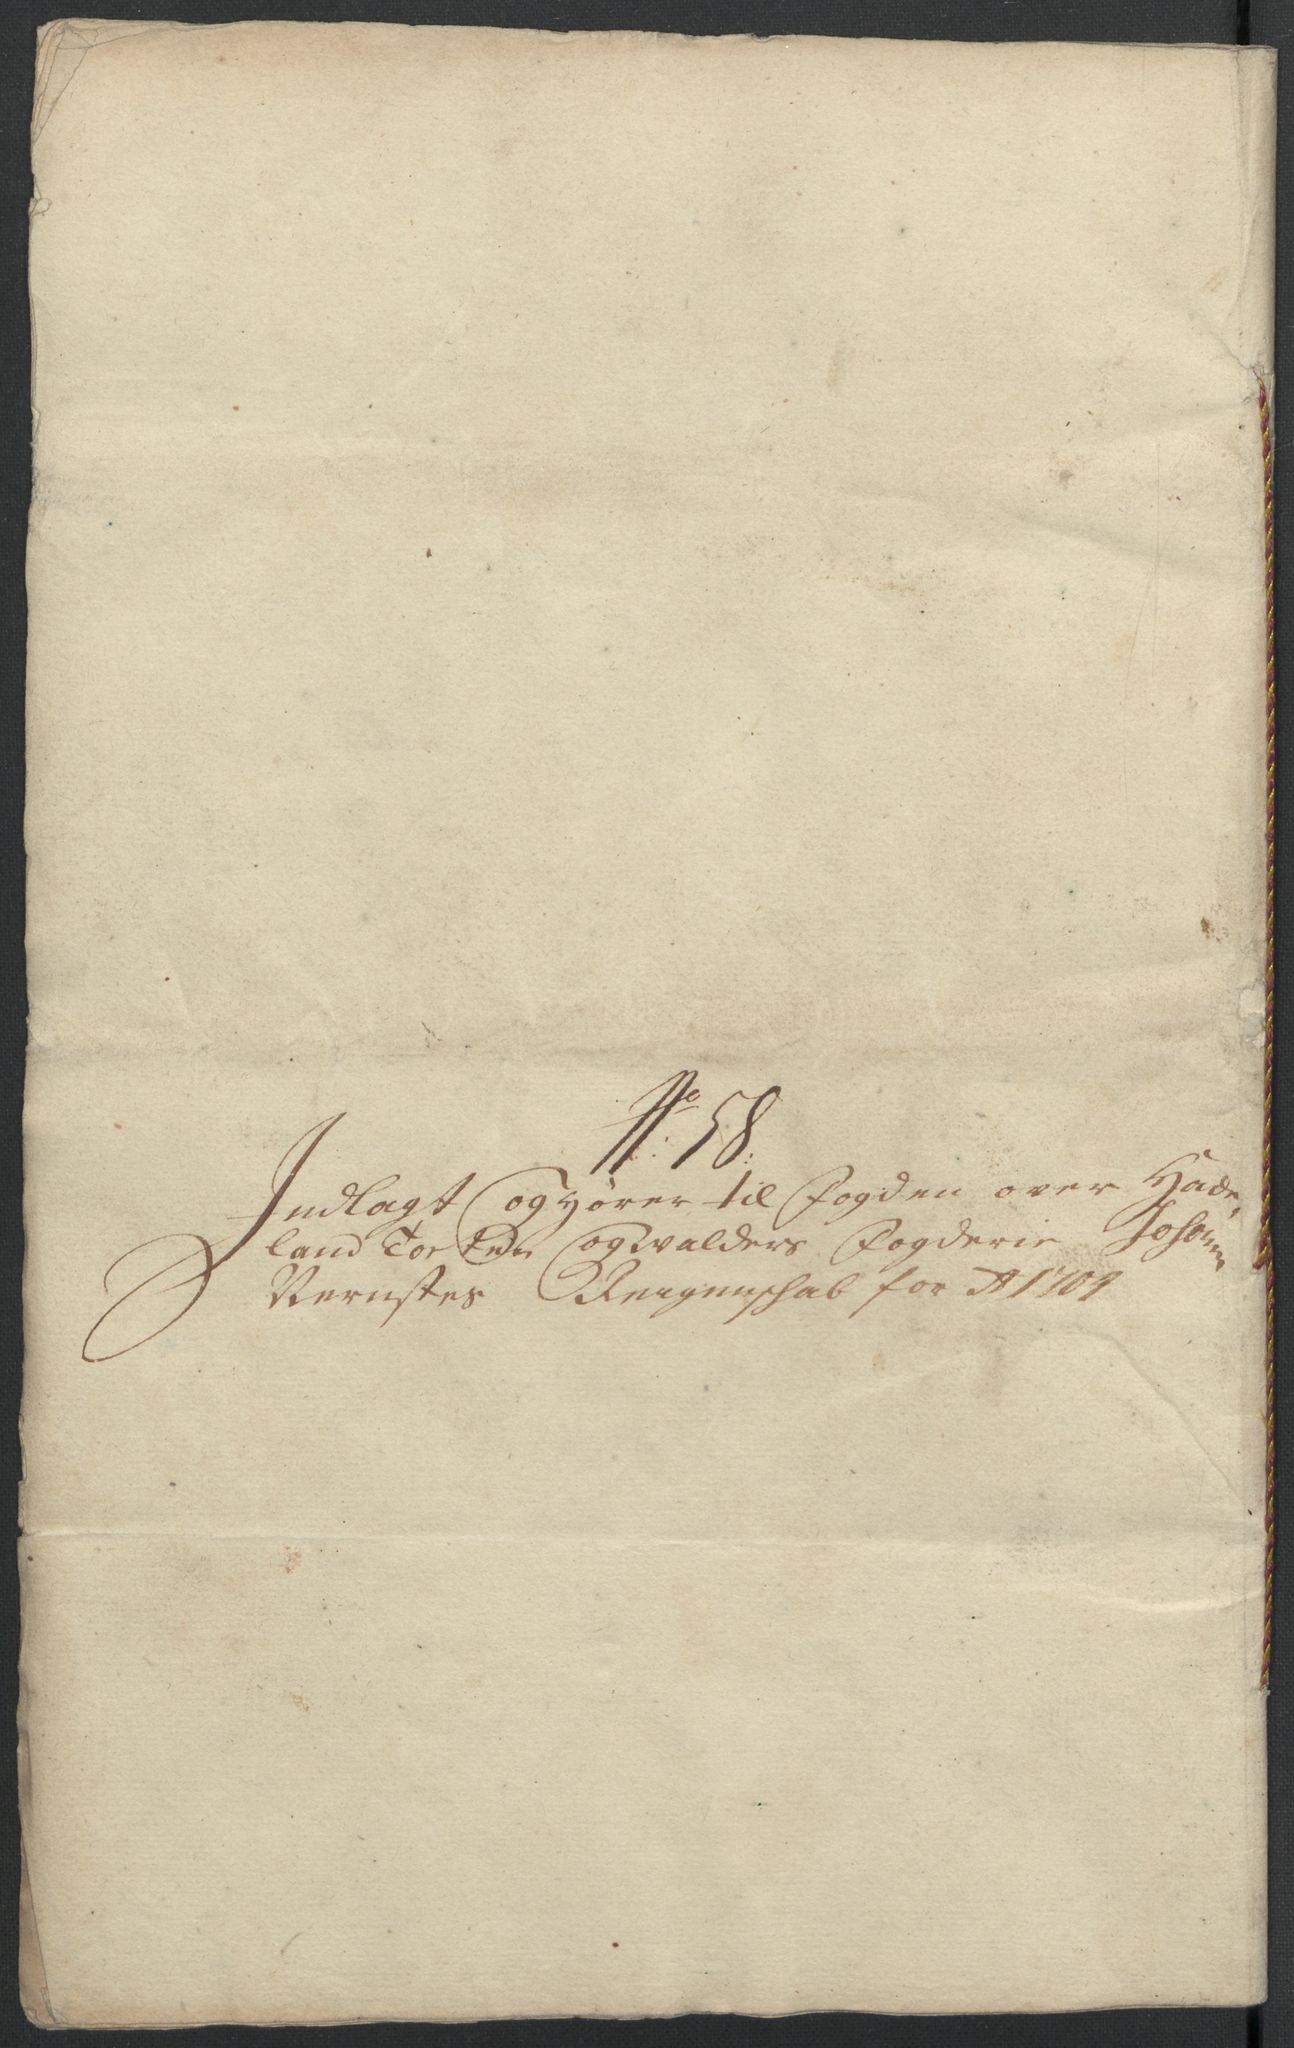 No 58.
Indlagt og hörer til Fogden over Hade-
land Toten og Valders Fogderie Johan
Vernstes Reigenschab for Ao 1704